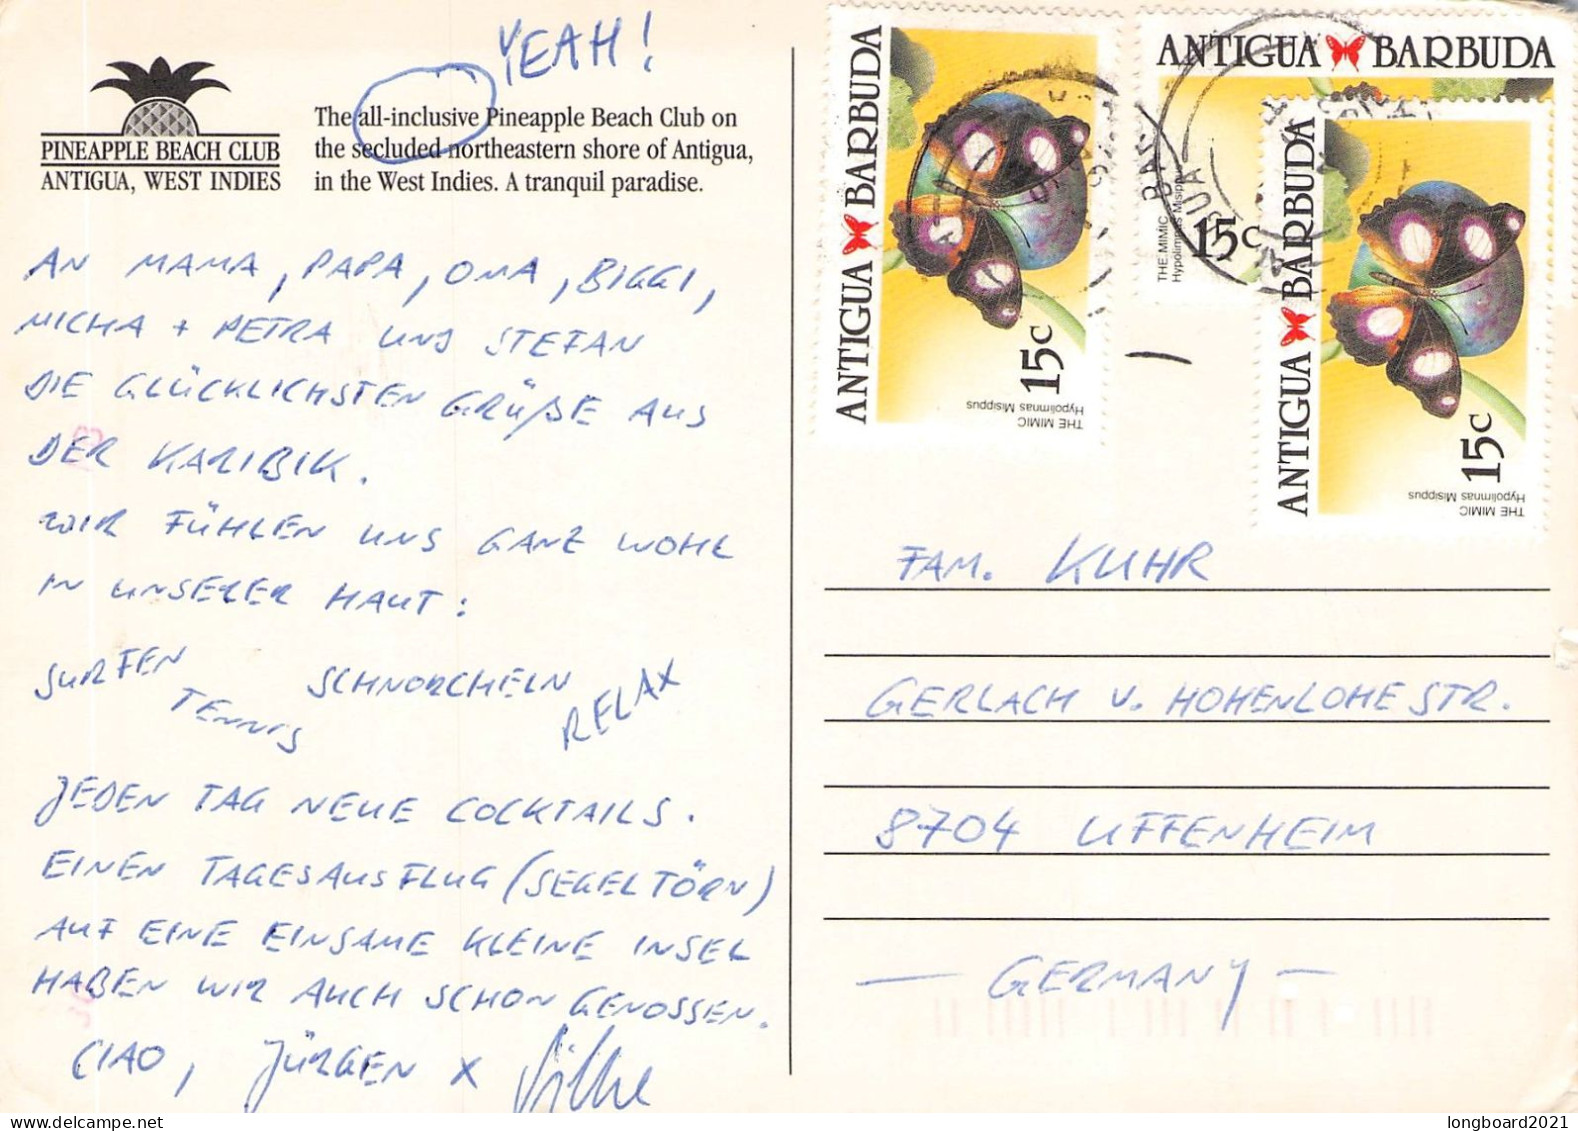 YEAH!
PINEAPPLE BEACH CLUB
ANTIGUA, WEST INDIES
The all-inclusive Pineapple Beach Club on
the secluded northeastern shore of Antigua,
in the West Indies. A tranquil paradise.
AN MAMA, PAPA, OMA, BIGGI,
MICHA + PETRA UND STEFAN
DIE GLÜCKLICHSTEN GRÜßE AUS
DER KARIBIK.
WIR FÜHLEN UNS GANZ WOHL
IN UNSERER HAUT:
SURFEN TENNIS SCHNORCHELN RELAX
JEDEN TAG NEUE COCKTAILS.
EINEN TAGESAUSFLUG (SEGELTÖRN)
AUF EINE EINSAME KLEINE INSEL
HABEN WIR AUCH SCHON GENOSSEN.
CIAO, JÜRGEN x
ANTIGUA BARBUDA
15c
THE MIMIC
Hypolimnas Misippus
ANTIGUA BARBUDA
15c
THE MIMIC
Hypolimnas Misipp
ANTIGUA BARBUDA
15c
THE MIMIC
Hypolimnas Misippus
FAM. KUHR
GERLACH V. HOHENLOHE STR.
8704 UFFENHEIM
— GERMANY —
longboard2021